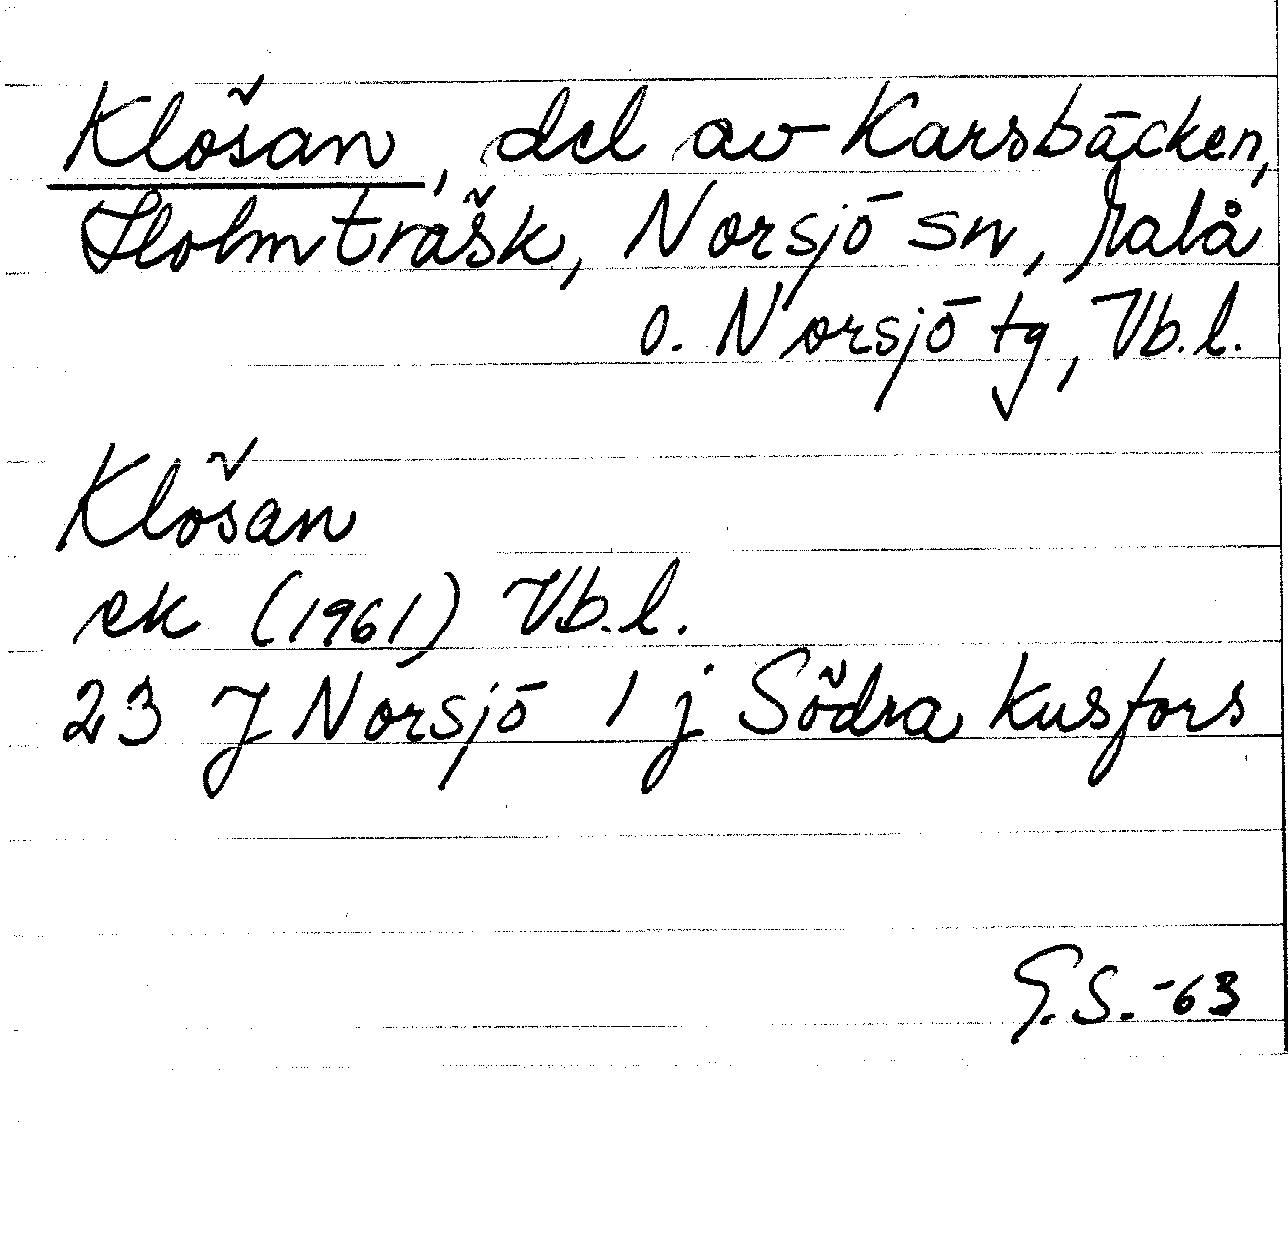 Klösan, del av Karsbäcken,
Holmträsk, Norsjö sn, Malå
o. Norsjö tg, Vb.l.
Klösan
ek (1961) Vb.l.
23 J Norsjö 1 j Södra Kusfors
G.S. -63